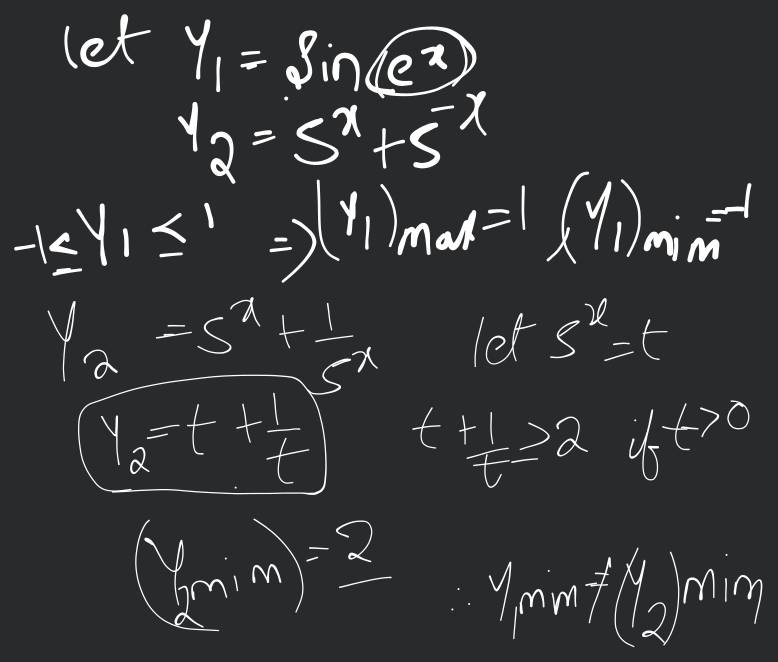 let Y₁ = Sin(eˣ)
Y₂ = 5ˣ + 5⁻ˣ
-1 ≤ Y₁ ≤ 1 ⇒ (Y₁)max = 1 (Y₁)min = -1
Y₂ = 5ˣ + 1/5ˣ let 5ˣ = t
Y₂ = t + 1/t t + 1/t ≥ 2 if t > 0
(Y₂min) = 2 ∴ Y₁min ≠ (Y₂)min